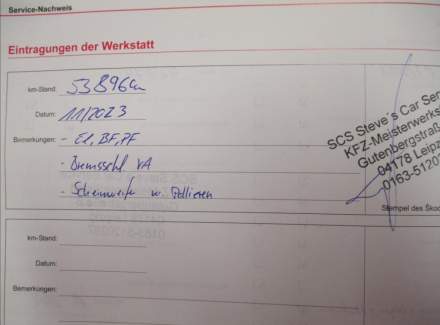 Service-Nachweis
Eintragungen der Werkstatt
km-Stand: 53896km
Datum: 11/2023
Bemerkungen: - Öl, BF, PF
- Bremsschl. VA
- Scheinwerfer Polieren
SCS Steve´s Car Ser
KFZ-Meisterwerks
Gutenbergstraß
04178 Leipz
0163-5120
Stempel des Ško
km-Stand:
Datum:
Bemerkungen: